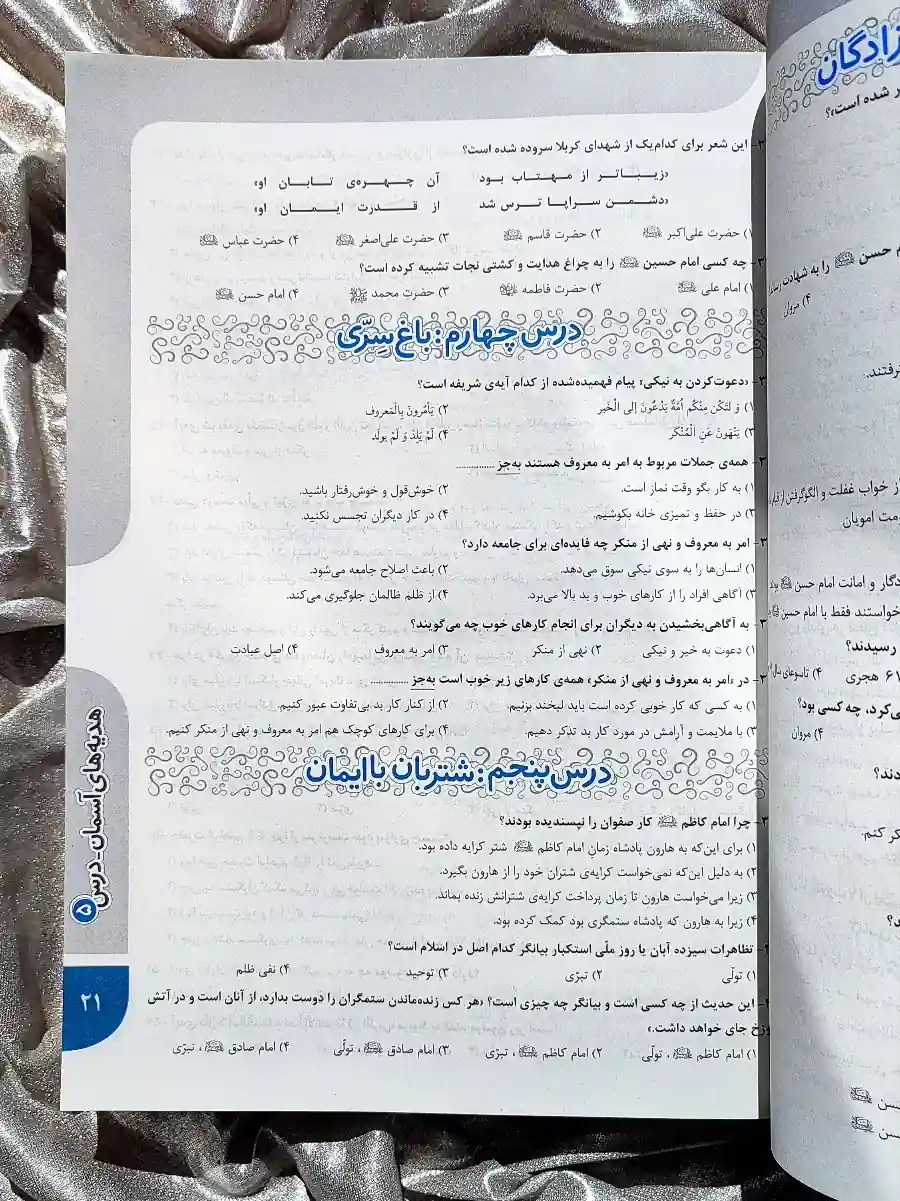 این شعر برای کدام‌یک از شهدای کربلا سروده شده است؟
«زیباتر از مهتاب بود آن چهره‌ی تابان او»
«دشمن سراپا ترس شد از قدرت ایمان او»
۱) حضرت علی‌اکبر ۲) حضرت قاسم ۳) حضرت علی‌اصغر ۴) حضرت عباس
چه کسی امام حسین را به چراغ هدایت و کشتی نجات تشبیه کرده است؟
۱) امام علی ۲) حضرت فاطمه ۳) حضرت محمد ۴) امام حسن
درس چهارم: باغ سِرّی
«دعوت‌کردن به نیکی» پیام فهمیده‌شده از کدام آیه‌ی شریفه است؟
۱) وَ لتَکُن مِنْکُم اُمَّةٌ یَدْعُونَ إلی الْخَیر ۲) یَأمُرونَ بِالْمَعروف
۳) یَنْهَونَ عَنِ الْمُنْکَر ۴) لَمْ یَلِدْ وَ لَمْ یولَد
همه‌ی جملات مربوط به امر به معروف هستند به‌جز ..............
۱) به کار بگو وقت نماز است. ۲) خوش‌قول و خوش‌رفتار باشید.
۳) در حفظ و تمیزی خانه بکوشیم. ۴) در کار دیگران تجسس نکنید.
امر به معروف و نهی از منکر چه فایده‌ای برای جامعه دارد؟
۱) انسان‌ها را به سوی نیکی سوق می‌دهد. ۲) باعث اصلاح جامعه می‌شود.
۳) آگاهی افراد را از کارهای خوب و بد بالا می‌برد. ۴) از ظلم ظالمان جلوگیری می‌کند.
به آگاهی‌بخشیدن به دیگران برای انجام کارهای خوب چه می‌گویند؟
۱) دعوت به خیر و نیکی ۲) نهی از منکر ۳) امر به معروف ۴) اصل عبادت
در «امر به معروف و نهی از منکر» همه‌ی کارهای زیر خوب است به‌جز ..............
۱) به کسی که کار خوبی کرده است باید لبخند بزنیم. ۲) از کنار کار بد بی‌تفاوت عبور کنیم.
۳) با ملایمت و آرامش در مورد کار بد تذکر دهیم. ۴) برای کارهای کوچک هم امر به معروف و نهی از منکر کنیم.
درس پنجم: شتربان باایمان
چرا امام کاظم کار صفوان را نپسندیده بودند؟
۱) برای این‌که به هارون پادشاه زمان امام کاظم شتر کرایه داده بود.
۲) به دلیل این‌که نمی‌خواست کرایه‌ی شتران خود را از هارون بگیرد.
۳) زیرا می‌خواست هارون تا زمان پرداخت کرایه‌ی شترانش زنده بماند.
۴) زیرا به هارون که پادشاه ستمگری بود کمک کرده بود.
تظاهرات سیزده آبان یا روز ملّی استکبار بیانگر کدام اصل در اسلام است؟
۱) تولّی ۲) تبرّی ۳) توحید ۴) نفی ظلم
این حدیث از چه کسی است و بیانگر چه چیزی است؟ «هر کس زنده‌ماندن ستمگران را دوست بدارد، از آنان است و در آتش
وزخ جای خواهد داشت.»
۱) امام کاظم ، تولّی ۲) امام کاظم ، تبرّی ۳) امام صادق ، تولّی ۴) امام صادق ، تبرّی
هدیه‌های آسمان - درس ۵
۲۱
زادگان
ر شده است»؟
م حسن را به شهادت
۴) مروان
رفتند.
از خواب غفلت و الگوگرفتن از
مت امویان
دگار و امانت امام حسن
خواستند فقط با امام حسن
رسیدند؟
۶۱ هجری ۴) تاسوعای سال
می‌کرد، چه کسی بود؟
۴) مروان
دند؟
کر کنم.
د؟
حسن
حسن